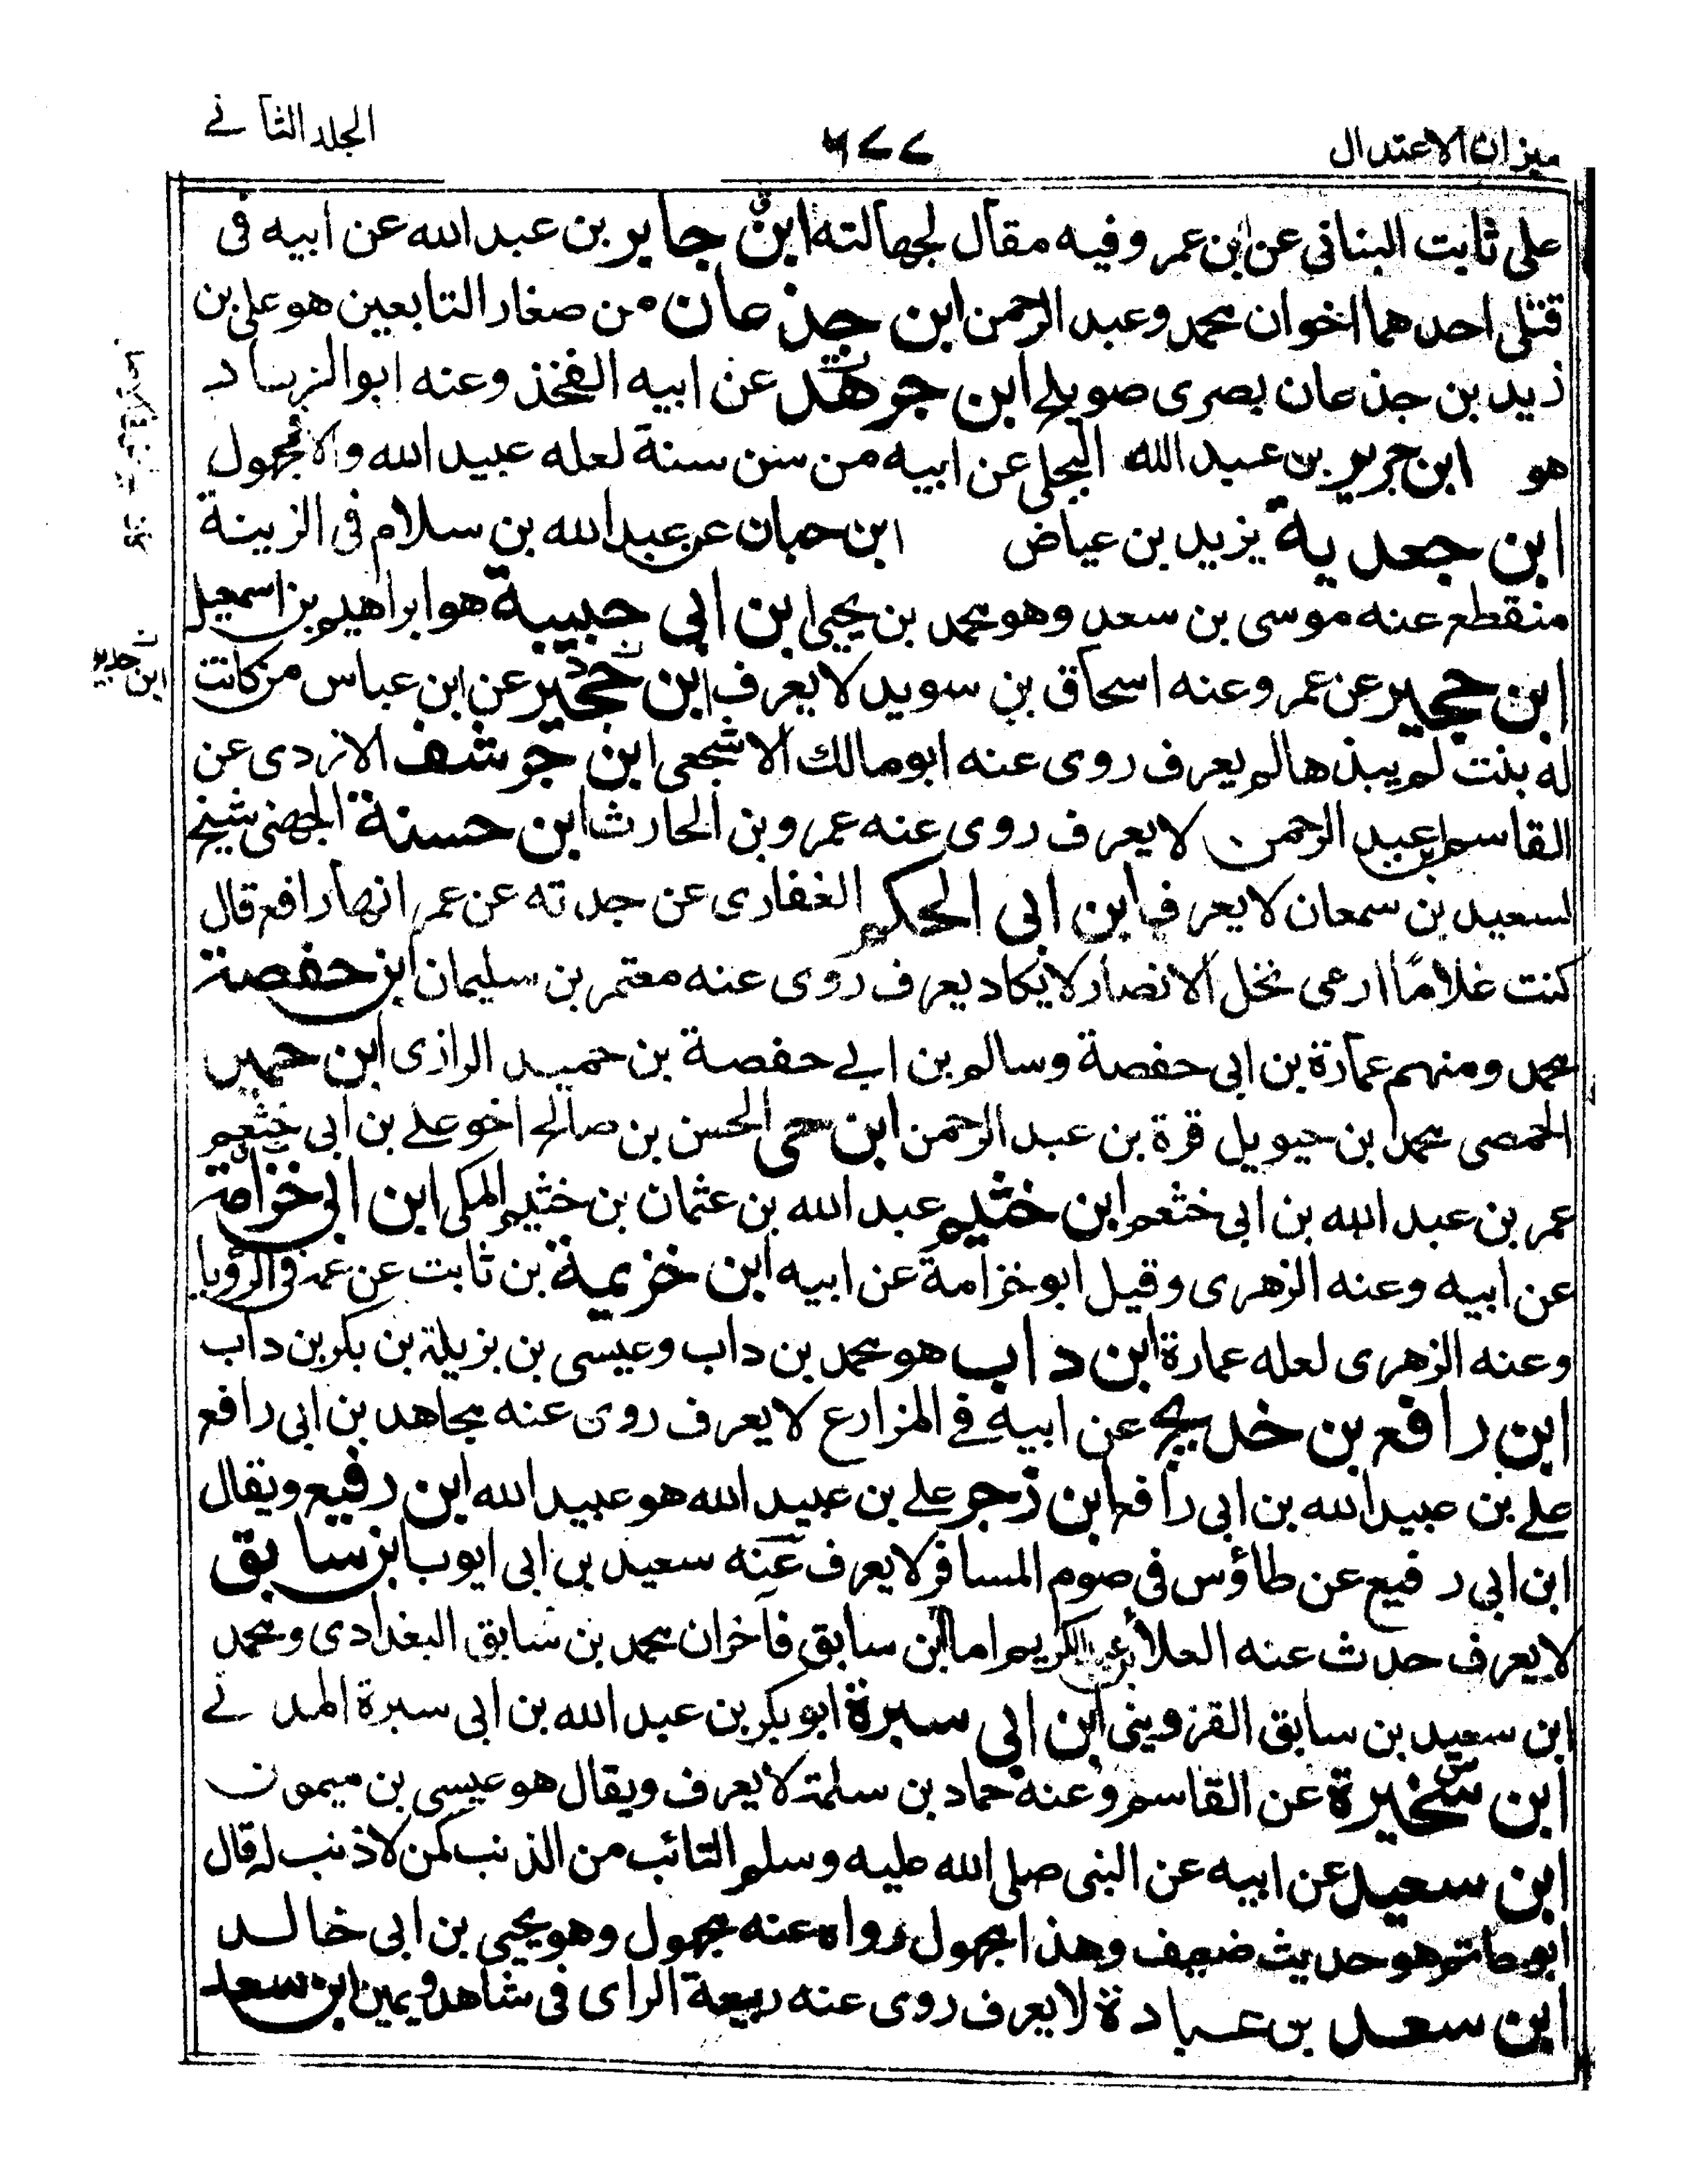 ميزان الاعتدال ٦٧٧ الجلد الثاني
علي ثابت البناني عن ابن عمر وفيه مقال لجهالته ابن جابر بن عبد الله عن ابيه في
قتلى احد هما اخوان محمد وعبد الرحمن ابن جذعان من صغار التابعين هو علي بن
زيد بن جذعان بصري صويلح ابن جرهد عن ابيه الفخذ وعنه ابو الزناد
هو ابن جرير بن عبد الله البجلي عن ابيه من سن سنة لعله عبيد الله والا فمجهول
ابن جعدية يزيد بن عياض ابن حبان عن عبد الله بن سلام في الزينة
منقطع عنه موسى بن سعد وهو محمد بن يحيى ابن ابي حبيبة هو ابراهيم بن اسمعيل
ابن حجير عن عمر وعنه اسحاق بن سويد لا يعرف ابن حدير عن ابن عباس من كانت
ابن حدير
له بنت لم يبذها لم يعرف روى عنه ابو مالك الاشجعي ابن جرشف الازدي عن
القاسم بن عبد الرحمن لا يعرف روى عنه عمرو بن الحارث ابن حسنة الجهني شيخ
لسعيد بن سمعان لا يعرف ابن ابي الحكم الغفاري عن جدته عن عم انها رافع قال
كنت غلاما ارعى نخل الانصار لا يكاد يعرف روى عنه معتمر بن سليمان ابن حفصة
محمد ومنهم عمارة بن ابي حفصة وسالم بن ابي حفصة بن حميد الرازي ابن حمير
الحمصي محمد ابن حيويل قرة بن عبد الرحمن ابن حي الحسن بن صالح اخو علي بن ابي خثعم
عمر بن عبد الله بن ابي خثعم ابن خثيم عبد الله بن عثمان بن خثيم المكي ابن ابي خزامة
عن ابيه وعنه الزهري وقيل ابو خزامة عن ابيه ابن خزيمة بن ثابت عن عمه في الرؤيا
وعنه الزهري لعله عمارة ابن داب هو محمد بن داب وعيسى بن يزيد بن بكر بن داب
ابن رافع بن خديج عن ابيه في المزارع لا يعرف روى عنه مجاهد بن ابي رافع
علي بن عبيد الله بن ابي رافع ابن زجر علي بن عبيد الله هو عبيد الله ابن رفيع ويقال
ابن ابي رفيع عن طاؤس في صوم المسافر لا يعرف عنه سعيد بن ابي ايوب ابن سابق
لا يعرف حدث عنه العلاء بن عبد الكريم اما ابن سابق فآخران محمد بن سابق البغدادي ومحمد
ابن سعيد بن سابق القزويني ابن ابي سبرة ابو بكر بن عبد الله بن ابي سبرة المدني
ابن سخبرة عن القاسم وعنه حماد بن سلمة لا يعرف ويقال هو عيسى بن ميمون
ابن سعيد عن ابيه عن النبي صلى الله عليه وسلم التائب من الذنب كمن لا ذنب له قال
ابو حاتم هو حديث ضعيف وهذا مجهول رواه عنه مجهول وهو يحيى بن ابي خالد
ابن سعد بن عبادة لا يعرف روى عنه ربيعة الراي في شاهد ويمين ابن سعد